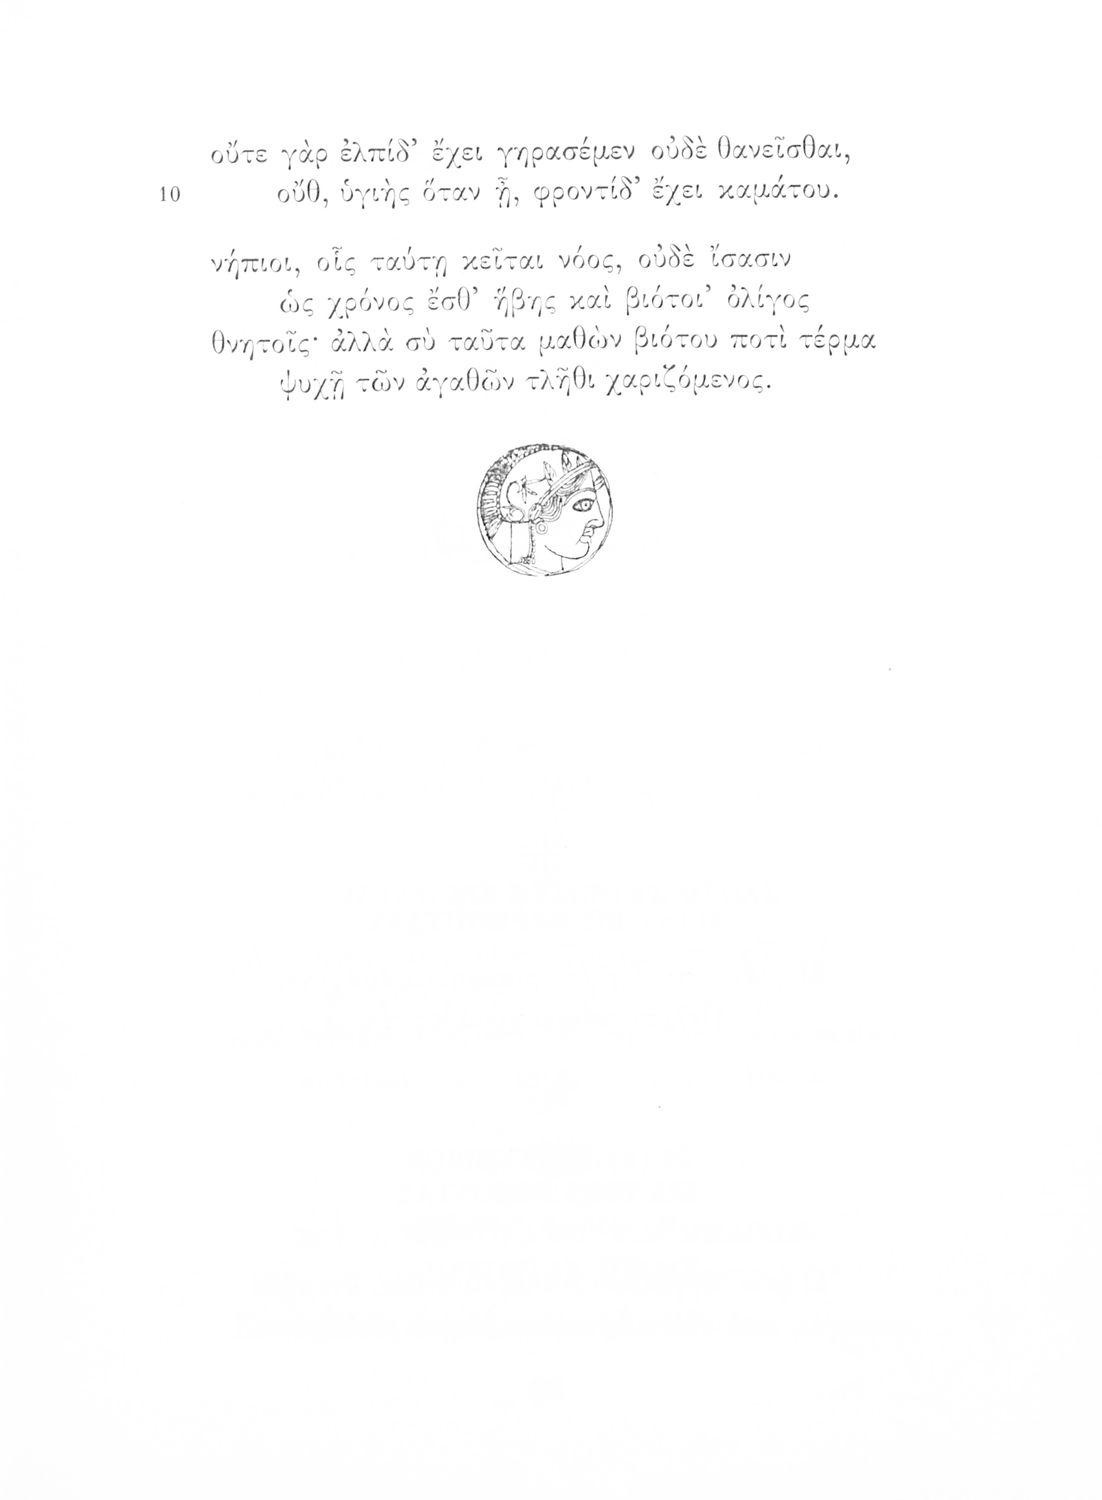 οὔτε γὰρ ἐλπίδ’ ἔχει γηρασέμεν οὐδὲ θανεῖσθαι,
10 οὔθ, ὑγιὴς ὅταν ᾖ, φροντίδ’ ἔχει καμάτου.
νήπιοι, οἷς ταύτῃ κεῖται νόος, οὐδὲ ἴσασιν
ὡς χρόνος ἔσθ’ ἥβης καὶ βιότοι’ ὀλίγος
θνητοῖς· ἀλλὰ σὺ ταῦτα μαθὼν βιότου ποτὶ τέρμα
ψυχῇ τῶν ἀγαθῶν τλῆθι χαριζόμενος.